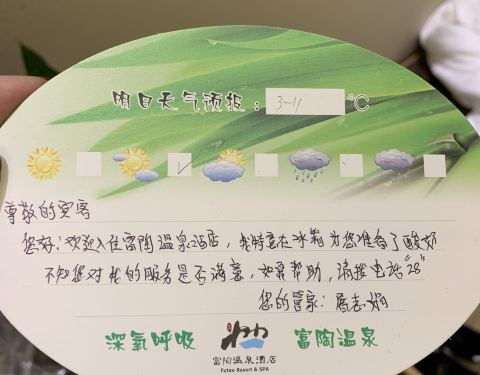 明日天气预报：3-11℃
尊敬的宾客
您好！欢迎入住富陶温泉酒店，我特意在冰箱为您准备了酸奶
不知您对我的服务是否满意，如需帮助，请拨电话"28"
您的管家：
深氧呼吸
富陶温泉酒店
Futao Resort & SPA
富陶温泉